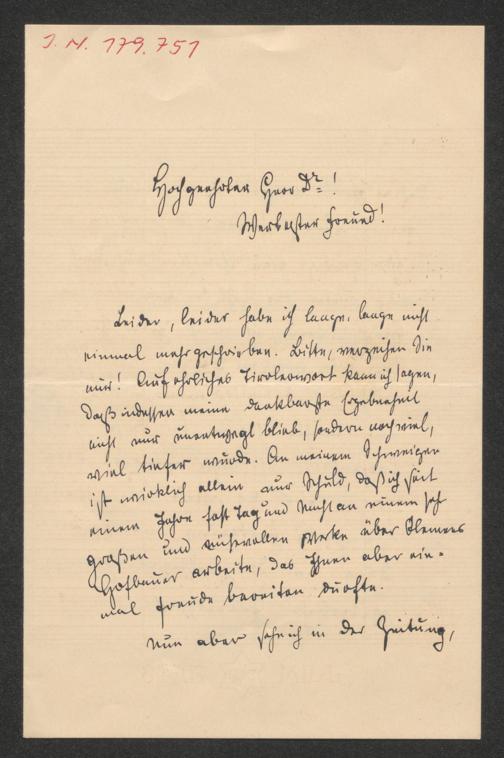 J. N. 179.751
Hochgeehrter Herr Dr.!
Wertester Freund!
Leider, leider habe ich lange, lange nicht
einmal mehr geschrieben. Bitte, verzeihen Sie
mir! Auf ehrliches Tirolerwort kann ich sagen,
daß indessen meine dankbarste Ergebenheit
nicht nur unentwegt blieb, sondern noch viel,
viel tiefer wurde. An meinem Schweigen
ist wirklich allein nur Schuld, daß ich seit
einem Jahre fast Tag und Nacht an einem sehr
großen und mühevollen Werke über Clemens
Hofbauer arbeite, das Ihnen aber ein-
mal Freude bereiten dürfte.
Nun aber sehe ich in der Zeitung,